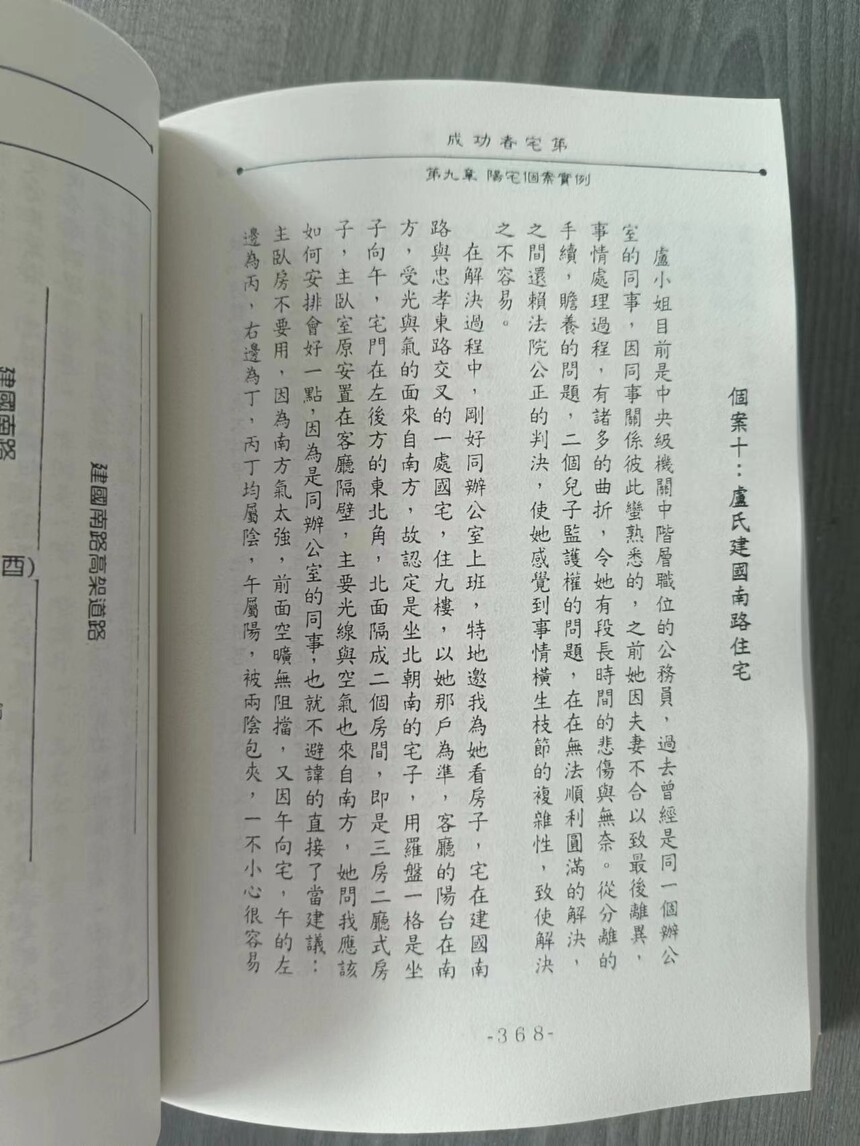 成功春宅第
第九章 陽宅個案實例
個案十：盧氏建國南路住宅
盧小姐目前是中央級機關中階層職位的公務員，過去曾經是同一個辦公
室的同事，因同事關係彼此蠻熟悉的，之前她因夫妻不合以致最後離異，
事情處理過程，有諸多的曲折，令她有段長時間的悲傷與無奈。從分離的
手續，贍養的問題，二個兒子監護權的問題，在在無法順利圓滿的解決，
之間還賴法院公正的判決，使她感覺到事情橫生枝節的複雜性，致使解決
之不容易。
在解決過程中，剛好同辦公室上班，特地邀我為她看房子，宅在建國南
路與忠孝東路交叉的一處國宅，住九樓，以她那戶為準，客廳的陽台在南
方，受光與氣的面來自南方，故認定是坐北朝南的宅子，用羅盤一格是坐
子向午，宅門在左後方的東北角，北面隔成二個房間，即是三房二廳式房
子，主臥室原安置在客廳隔壁，主要光線與空氣也來自南方，她問我應該
如何安排會好一點，因為是同辦公室的同事，也就不避諱的直接了當建議：
主臥房不要用，因為南方氣太強，前面空曠無阻擋，又因午向宅，午的左
邊為丙，右邊為丁，丙丁均屬陰，午屬陽，被兩陰包夾，一不小心很容易
-368-
建國南路高架道路
建國南路
(酉